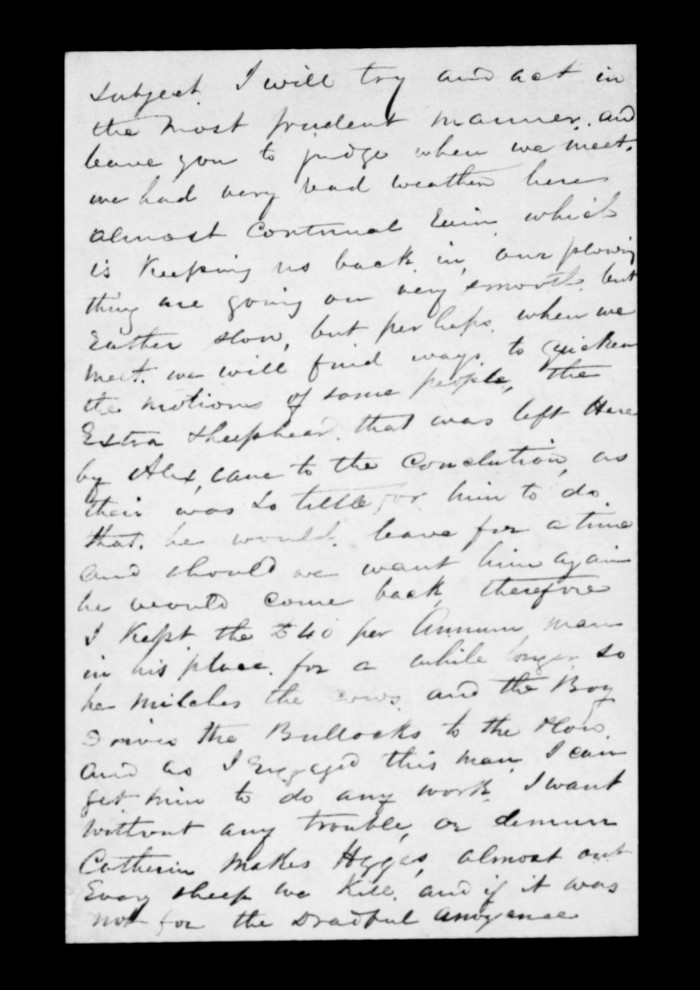 subject. I will try and act in
the most prudent manner. and
leave you to judge when we meet.
we had very bad weather here
almost Continual Rain which
is Keeping us back in our plowing
thing are going on very smooth but
Rather slow, but perhaps when we
meet. we will find ways to quicken
the motions of some people, the
Extra sheephead. that was left Here
by Alex, came to the Conclution, as
their was so little for him to do
that. he would. leave for a time
and should we want him again
he would come back, therefore
I Kept the £40 per Annum man
in his place. for a while longer so
he milches the cows. and the Boy
Drives the Bullocks to the Plow.
and as I Engaged this man I can
get him to do any work. I want
without any trouble, or demur
Catherin makes Hggas, almost out
Evary sheep we Kill. and if it was
not for the Dradful anoyence